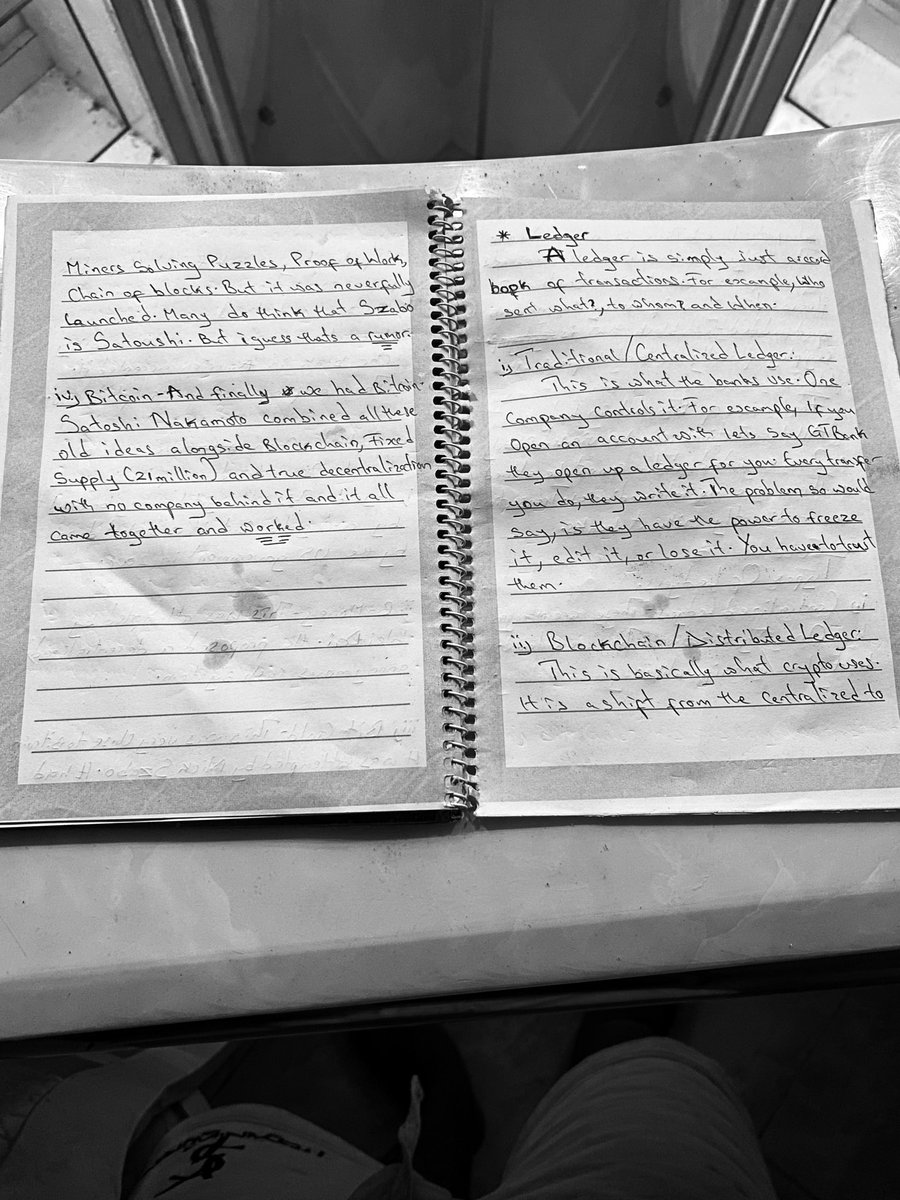 Miners Solving Puzzles, Proof of Work,
Chain of blocks. But it was never fully
launched. Many do think that Szabo
is Satoushi. But i guess thats a rumor.
iv) Bitcoin - And finally we had Bitcoin.
Satoshi Nakamoto combined all these
old ideas alongside Blockchain, Fixed
Supply (21 million) and true decentralization
with no company behind it and it all
came together and worked.
* Ledger
A ledger is simply just a record
book of transactions. For example, Who
sent what?, to whom? and When.
i) Traditional/Centralized Ledger:
This is what the banks use. One
Company Controls it. For example, If you
Open an account with lets say GTBank
they open up a ledger for you. Every transfer
you do, they write it. The problem so would
say, is they have the power to freeze
it, edit it, or lose it. You have to trust
them.
ii) Blockchain/Distributed Ledger:
This is basically what crypto uses.
It is a shift from the Centralized to